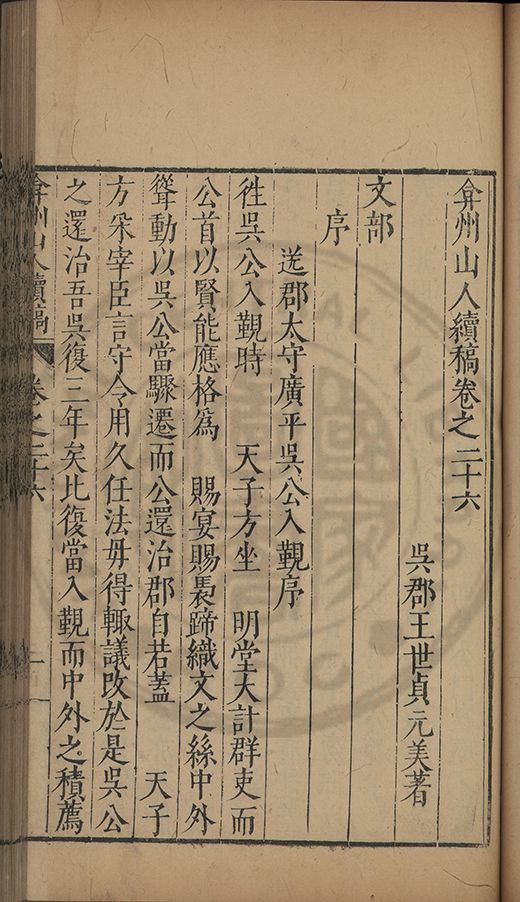 弇州山人續稿卷之二十六
吳郡王世貞元美著
文部
序
送郡太守廣平吳公入觀序
徃吳公入觀時　天子方坐　明堂大計群吏而
公首以賢能應格為　賜宴賜褭蹄織文之絲中外
聳動以吳公當驟遷而公還治郡自若蓋　天子
方采宰臣言守令用久任法毋得輙議改於是吳公
之還治吾吳復三年矣比復當入觀而中外之積薦
弇州山人續稿　卷之二十六　一